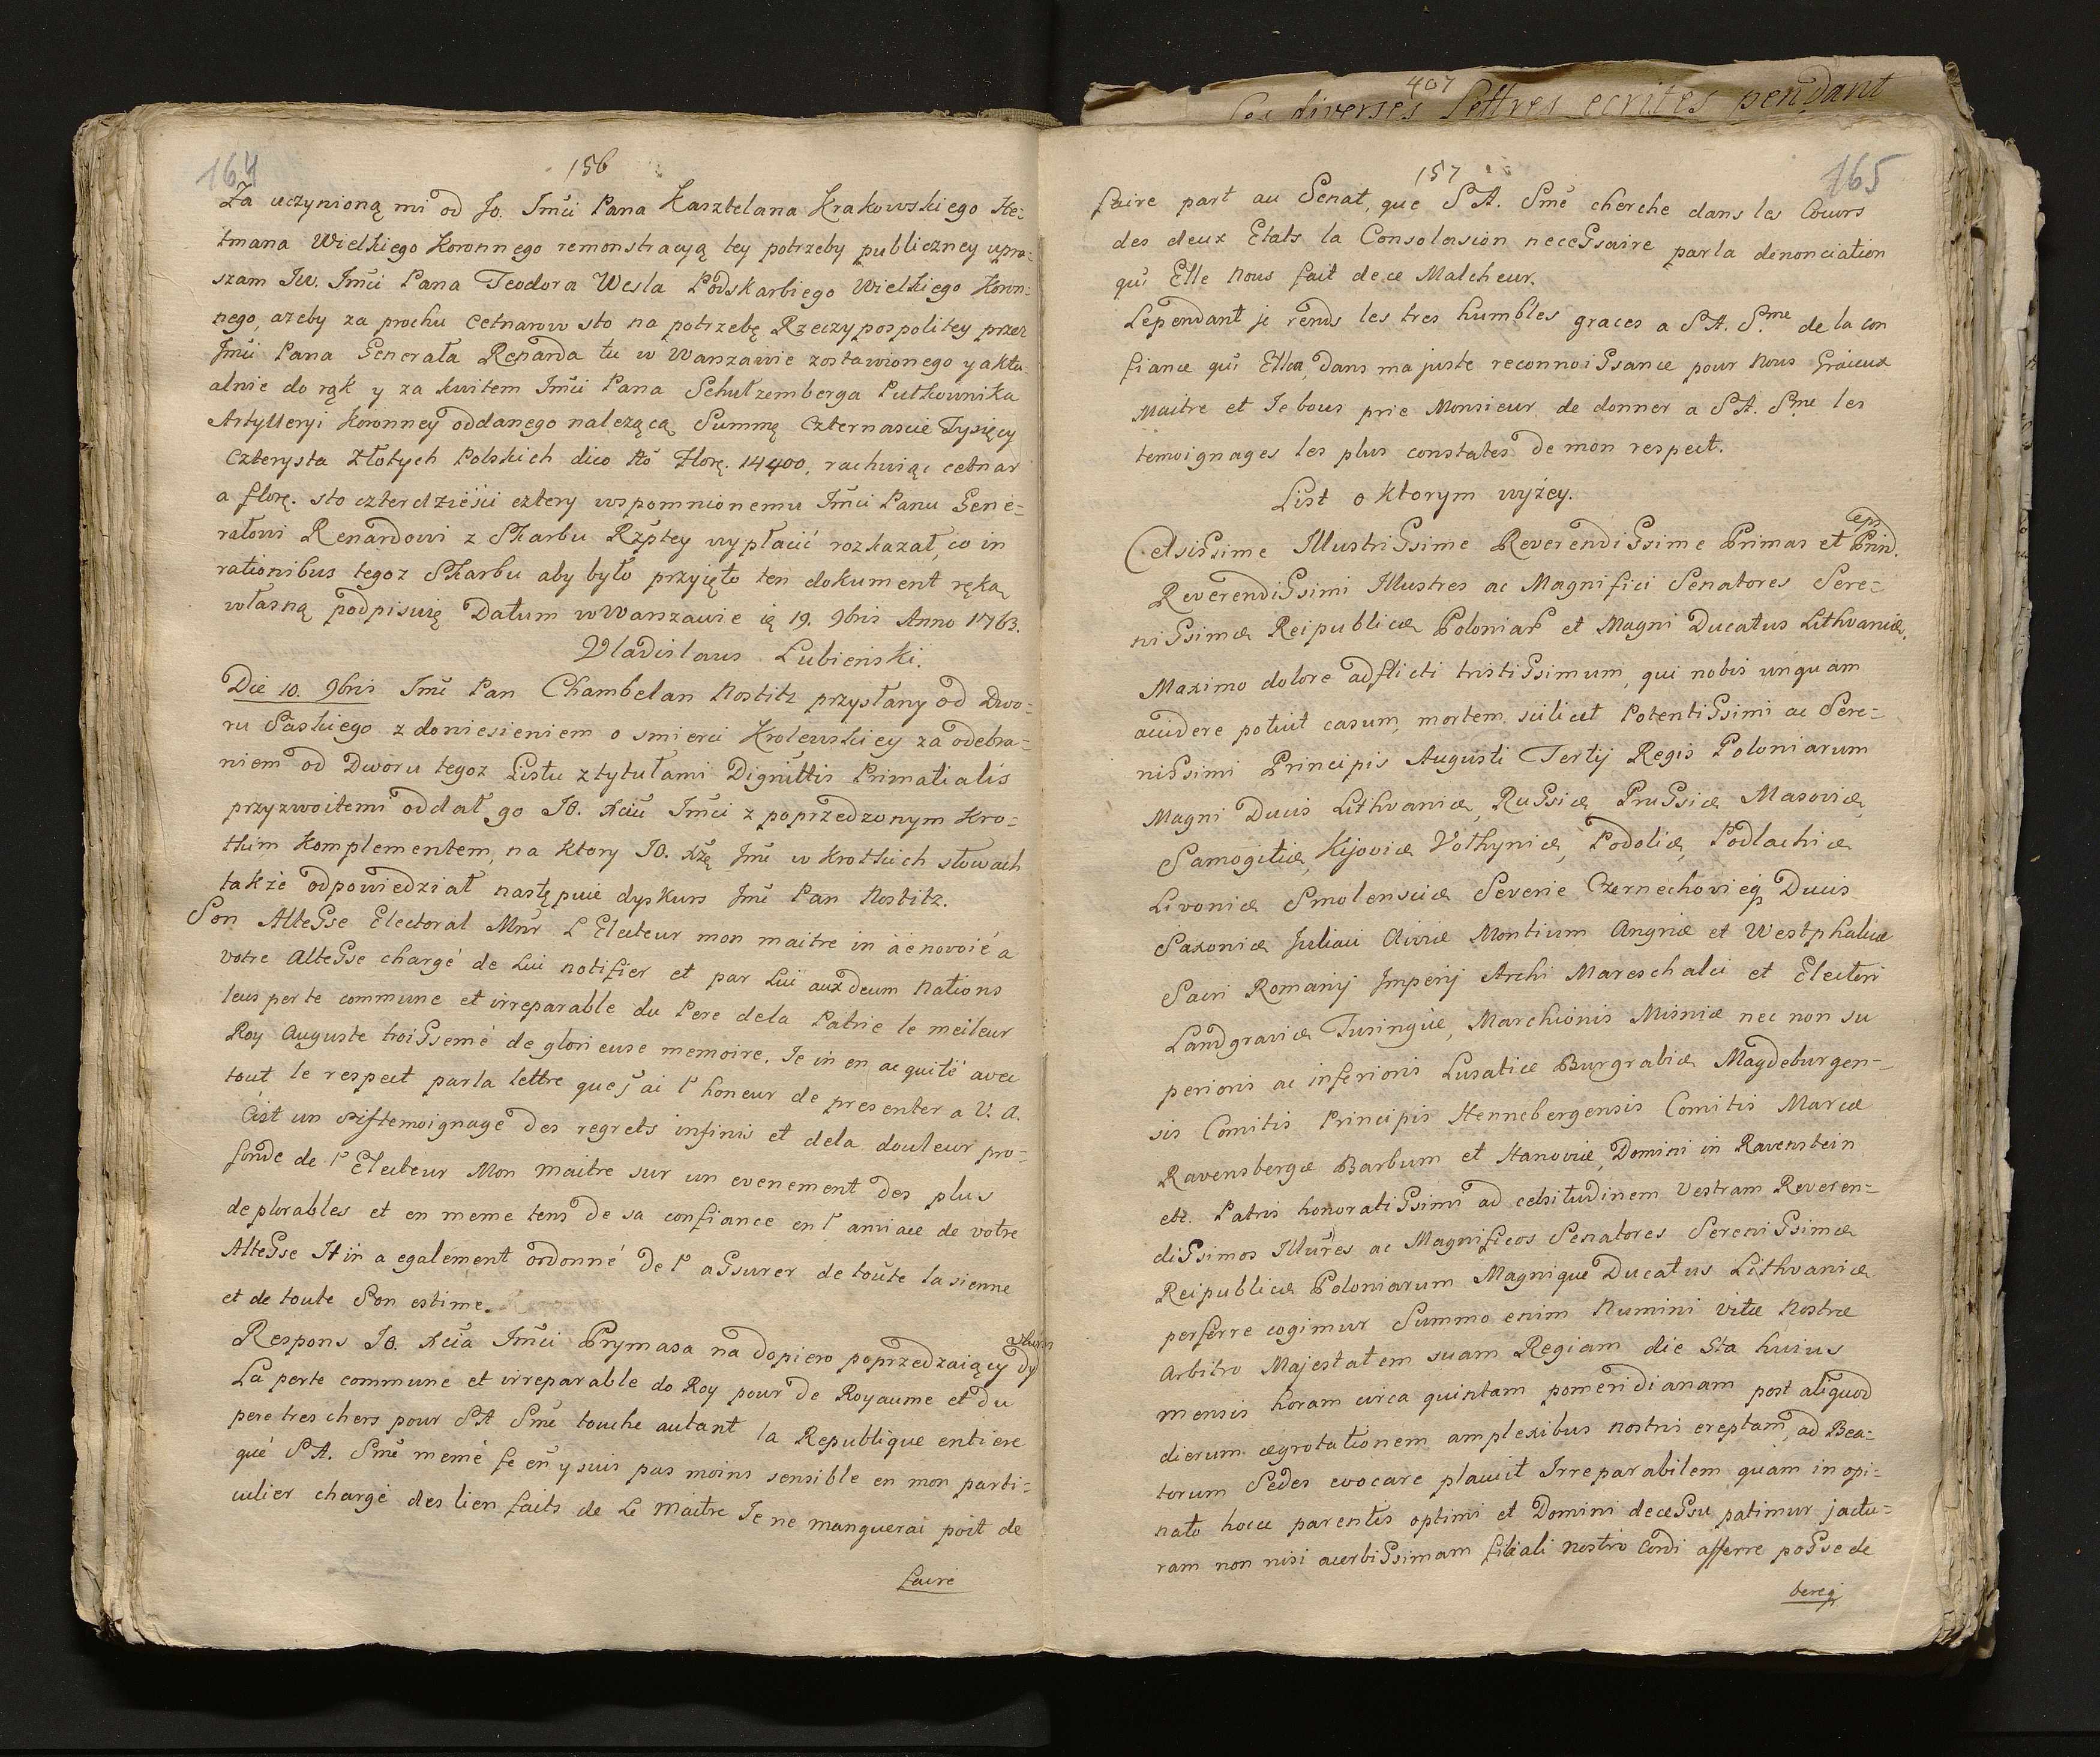 164
156
Za uczynioną mi od Jo. Jmći Pana Kasztelana Krakowskiego He=
tmana Wielkiego Koronnego remonstracyą tey potrzeby publiczney upra=
szam Jw. Jmći Pana Teodora Wesla Podskarbiego Wielkiego Koron=
nego, azeby za prochu Cetnarow sto na potrzebę Rzeczypospolitey przez
Jmći Pana Generała Renarda tu w Warszawie zostawionego y aktu=
alnie do rąk y za kwitem Jmći Pana Schultzemberga Pułkownika
Artylleryi Koronney oddanego nalezącą Summę Czternascie Tysięcy
Czterysta Złotych Polskich dico No Florę. 14400, rachuiąc cetnar
a florę. sto czterdzieści cztery wspomnionemu Jmći Panu Gene=
rałowi Renardowi z Skarbu Rzptey wypłacić rozkazał, co in
rationibus tegoz Skarbu aby było przyięto ten dokument ręką
własną podpisuię Datum w Warszawie ię 19. 9bris Anno 1763.
Vladislaus Lubieński.
Die 10. 9bris Jmć Pan Chambelan Nostitz przysłany od Dwo=
ru Saskiego z doniesieniem o smierci Krolewskiey za odebra=
niem od Dworu tegoz Listu z tytułami Dignittis Primatialis
przyzwoitemi oddał go JO. Xciu Jmći z poprzedzonym Kro=
tkim Komplementem, na ktory JO. Xżę Jmć w Krotkich słowach
także odpowiedział następuie dyskurs Jmć Pan Nostitz.
Son Altesse Electoral Mnr L Electeur mon maitre in äenovoié a
votre Altesse chargé de Lui notifier et par Lui aux deum Nations
leus perte commune et irreparable du Pere dela Patrie le meileur
Roy Auguste troissemé de glorieuse memoire. Je in en acquité avec
tout le respect parla lettre que j'ai l'honeur de presenter a V. A.
C'est un temoignage des regrets infinis et dela douleur pro=
fonde de l'Electeur Mon Maitre sur un evenement des plus
deplorables et en meme tens de sa confiance en l'amiace de votre
Altesse Itin a egalement ordonné de l'assurer de toute la sienne
et de toute Son estime.
Respons JO. Xcia Jmći Prymasa na dopiero poprzedzaiący dy
skurs
La perte commune et irreparable do Roy pour de Royaume et du
pere tres chers pour SA Smé touche autant la Republique entiere
qué S A. Smé memé Je en y suis pas moins sensible en mon parti=
culier chargé des lien faits de Le Maitre Je ne manguerai poit de
faire
407
diverses Lettres ecrites pendant
157
165
faire part au Senat, que S A. Smé cherche dans les Cours
des deux Etats la Consolasion necessaire parla dénonciation
qui Elle Nous fait de ce Malcheur.
Lependant je rends les tres humbles graces a S A. S.me de la con
fiance qui Ella, dans ma juste reconnoissance pour Nous Gracieux
Maitre et Je bous prie Monsieur de donner a S A. S.me les
temoignages les plus constates de mon respect.
List o Ktorym wyżey.
Celsissime Illustrissime Reverendissime Primas et Prin.
eps
Reverendissimi Illustres ac Magnifici Senatores Sere=
nissimæ Reipublicæ Poloniar et Magni Ducatus Lithvaniæ,
Maximo dolore adflicti tristissimum, qui nobis unquam
accidere potuit casum, mortem scilicet Potentissimi ac Sere=
nissimi Principis Augusti Tertij Regis Poloniarum
Magni Ducis Lithvaniæ, Russiæ, Prussiæ Masoviæ,
Samogitiæ, Kijoviæ Volhyniæ, Podoliæ, Podlachiæ
Livoniæ Smolensciæ Severie Czernechovieq Ducis
Saxoniæ Juliaci Cliviæ Montium Angriæ et Westphaliæ
Sacri Romanij Imperij Archi Mareschalci et Electori
Landgraviæ Turingiæ, Marchionis Misniæ nec non su
perioris ac inferioris Lusatiæ Burgrabiæ Magdeburgen=
sis Comitis Principis Hennebergensis Comitis Marcæ
Ravensbergæ Barbum et Hanoviæ, Domini in Ravenstein
etc. Patris honoratissimi ad celsitudinem Vestram Reveren=
dissimos Illures ac Magnificos Senatores Serenissimæ
Reipublicæ Poloniarum Magnique Ducatus Lithvaniæ
perferre cogimur Summo enim Numini vitæ Nostræ
Arbitro Majestatem suam Regiam die 5ta huius
mensis horam circa quintam pomeridianam post aliquod
dierum ægrotationem amplexibus nostris ereptam, ad Bea=
torum Sedes evocare placuit Irreparabilem quam inopi=
nato hocce parentis optimi et Domini decessu patimur jactu=
ram non nisi acerbissimam filiali nostro Cordi afferre posse de
bereq